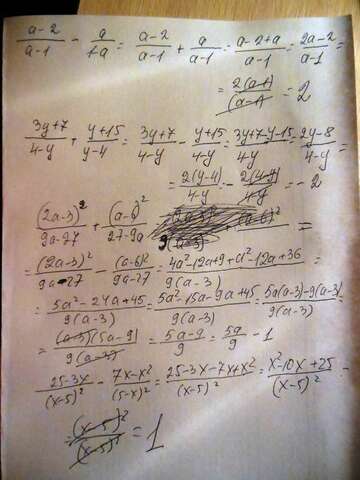 a-2/a-1 - a/1-a = a-2/a-1 + a/a-1 = a-2+a/a-1 = 2a-2/a-1 =
= 2(a-1)/(a-1) = 2
3y+7/4-y + y+15/y-4 = 3y+7/4-y - y+15/4-y = 3y+7-y-15/4-y = 2y-8/4-y =
= 2(y-4)/4-y = - 2(4-y)/4-y = -2
(2a-3)²/9a-27 + (a-6)²/27-9a =
= (2a-3)²/9a-27 - (a-6)²/9a-27 = 4a²-12a+9+a²-12a+36/9(a-3) =
= 5a²-24a+45/9(a-3) = 5a²-15a-9a+45/9(a-3) = 5a(a-3)-9(a-3)/9(a-3) =
= (a-3)(5a-9)/9(a-3) = 5a-9/9 = 5a/9 - 1
25-3x/(x-5)² - 7x-x²/(5-x)² = 25-3x-7x+x²/(x-5)² = x²-10x+25/(x-5)² =
= (x-5)²/(x-5)² = 1